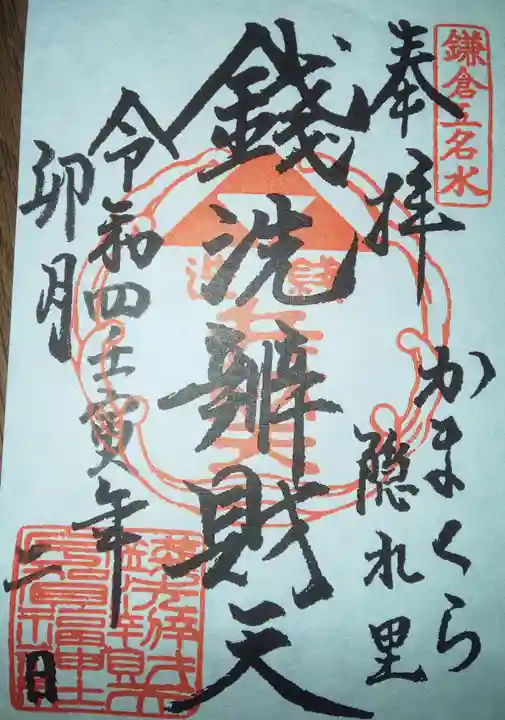 鎌倉五名水
奉拝
かまくら
隠れ里
銭洗辨財天
令和四壬寅年
卯月
二日